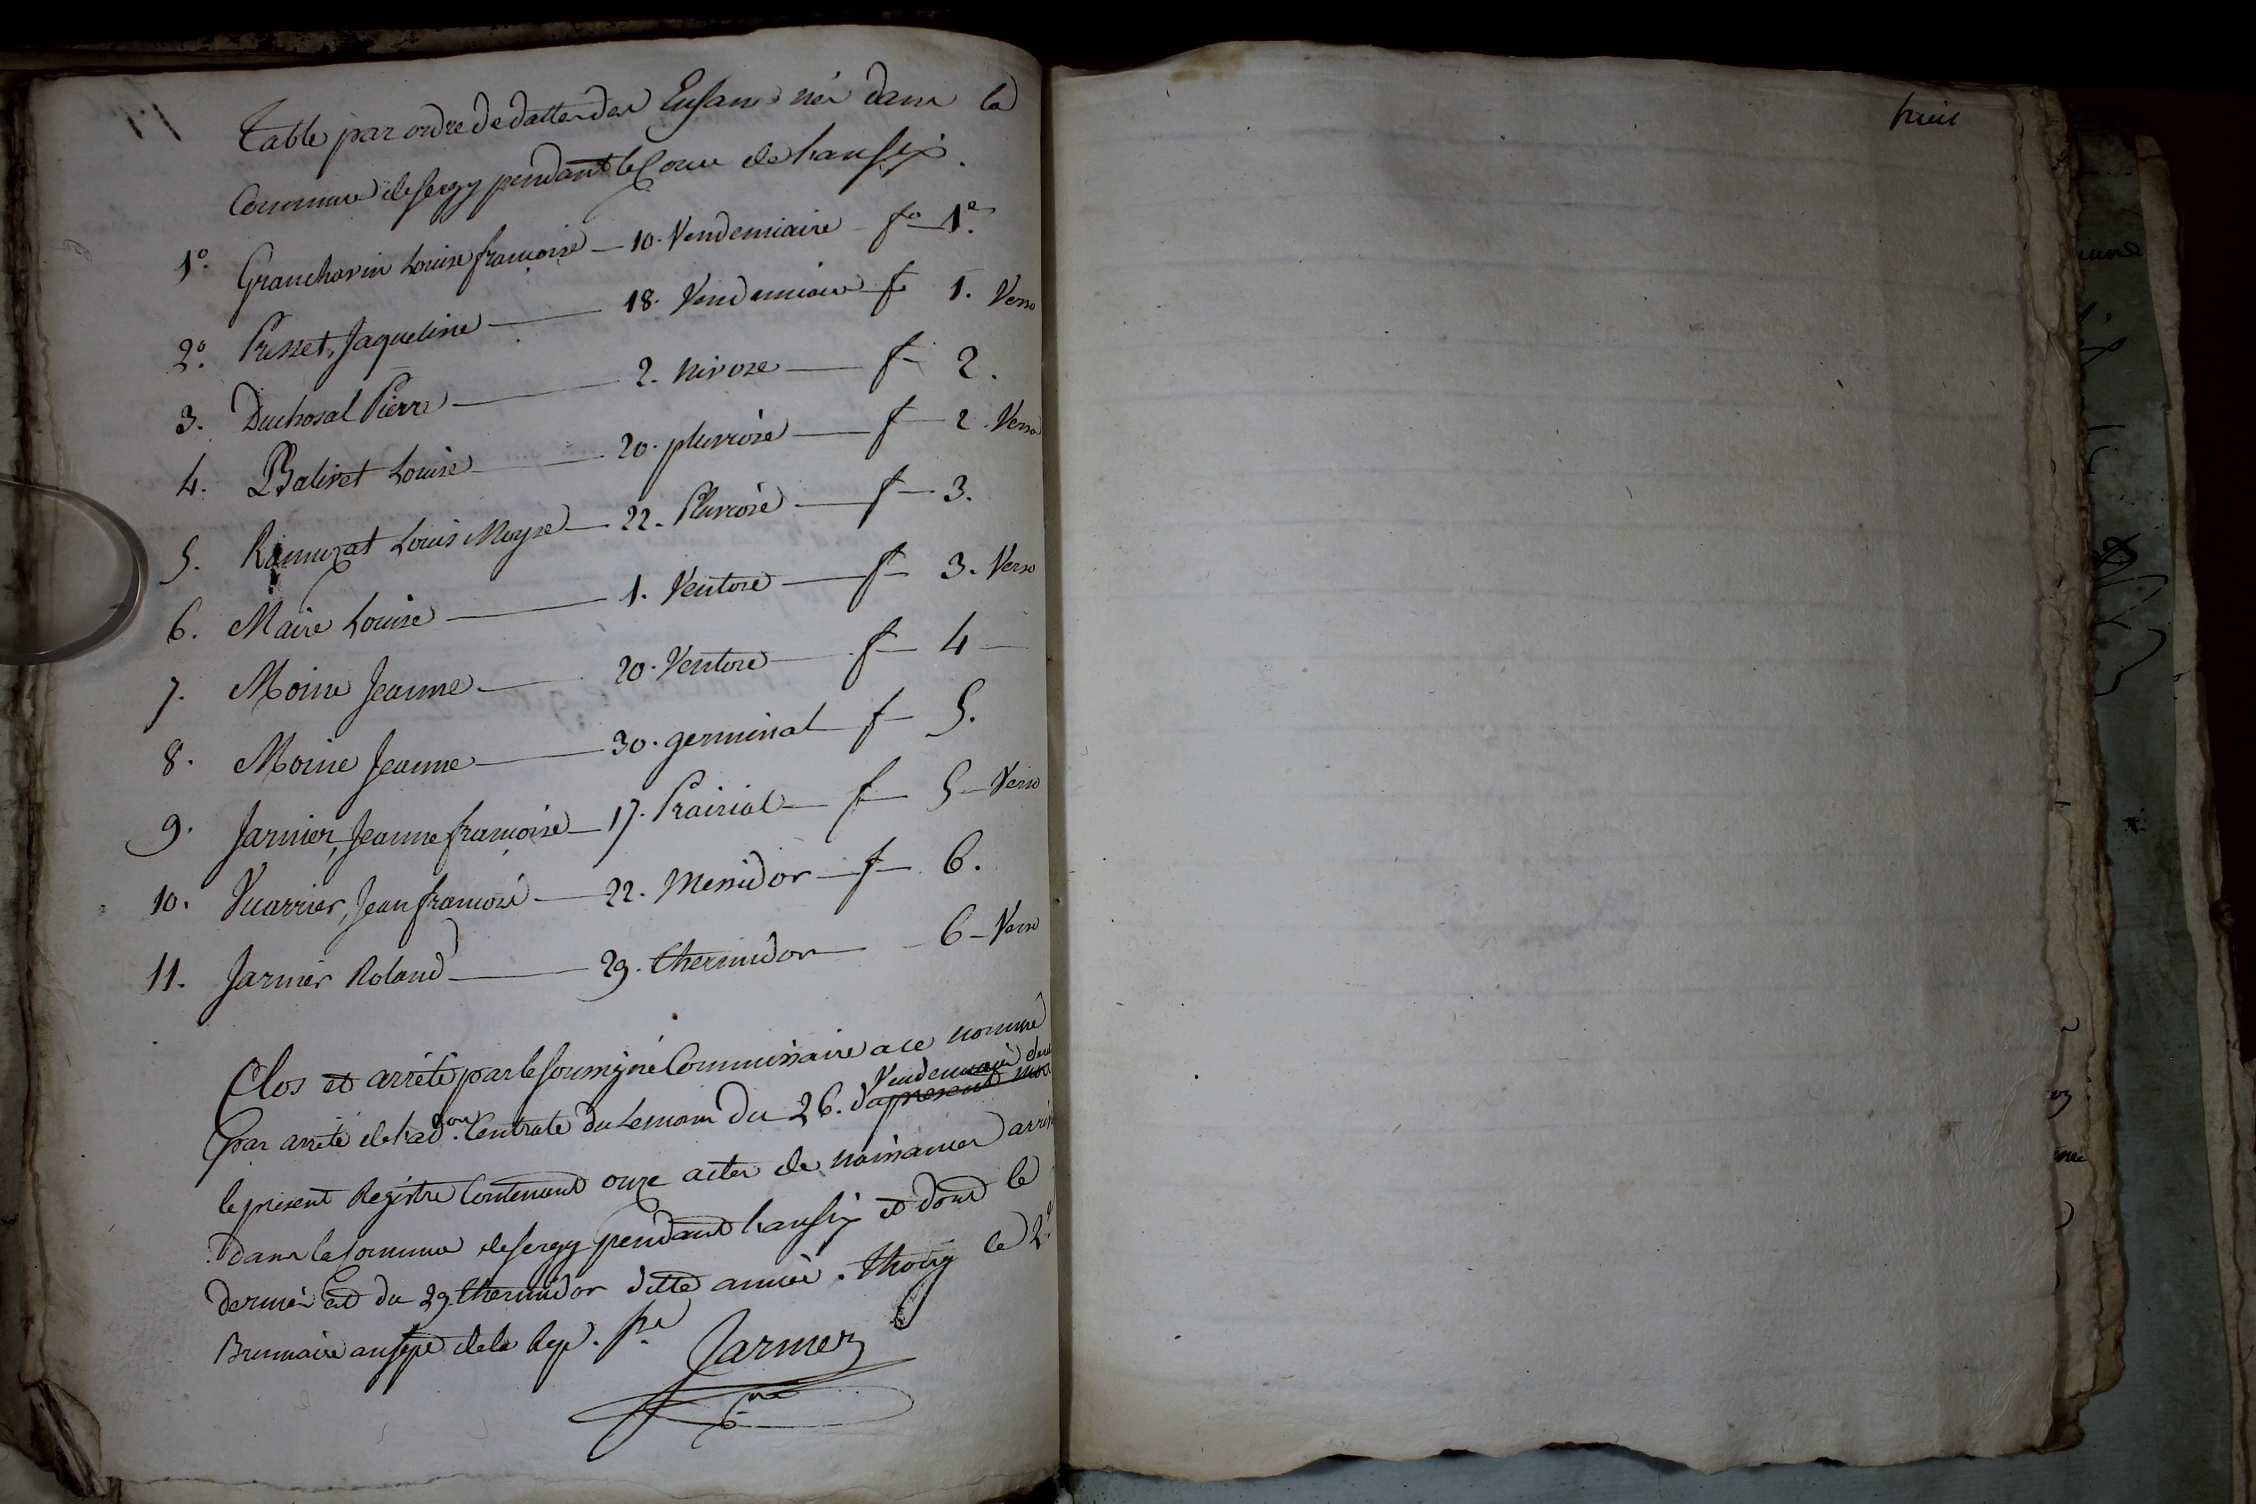 Table par ordre de dattes des Enfans nés dans la
Commune de Sergy pendant le Cours de l'an six.
1º. Granchavin Louise françoise — 10. Vendemiaire — fº 1º.
2º. Presset, Jaqueline — 18. Vendemiaire fº 1. Verso
3. Duchosal Pierre — 2. nivose — f — 2.
4. Balivet Louise — 20. pluviose — f — 2. Verso
5. Ramuzat Louis Moyse — 22. Pluviose — f — 3.
6. Maire Louise — 1. Ventose — f — 3. Verso
7. Moine Jeanne — 20. Ventose — f — 4 —
8. Moine Jeanne — 30. germinal — f — 5.
9. Jarnier, Jeanne françoise — 17. Prairial — f — 5 — Verso
10. Vuarrier, Jean françois — 22. Messidor — f — 6.
11. Jarnier Roland — 29. thermidor — 6 — Verso
Clos et arrêté par le soussigné Commissaire a ce nommé
Vendemiaire
par arrêté de l'ad.on Centrale du Leman du 26. du present mois
le present Registre Contenant onze actes de naissances
dans la Commune de Sergy pendant l'an six et dont le
dernier est du 29 thermidor ditte année. Thoiry le 2.
Brumaire an sept de la Rep. fse
Jarnier
huit